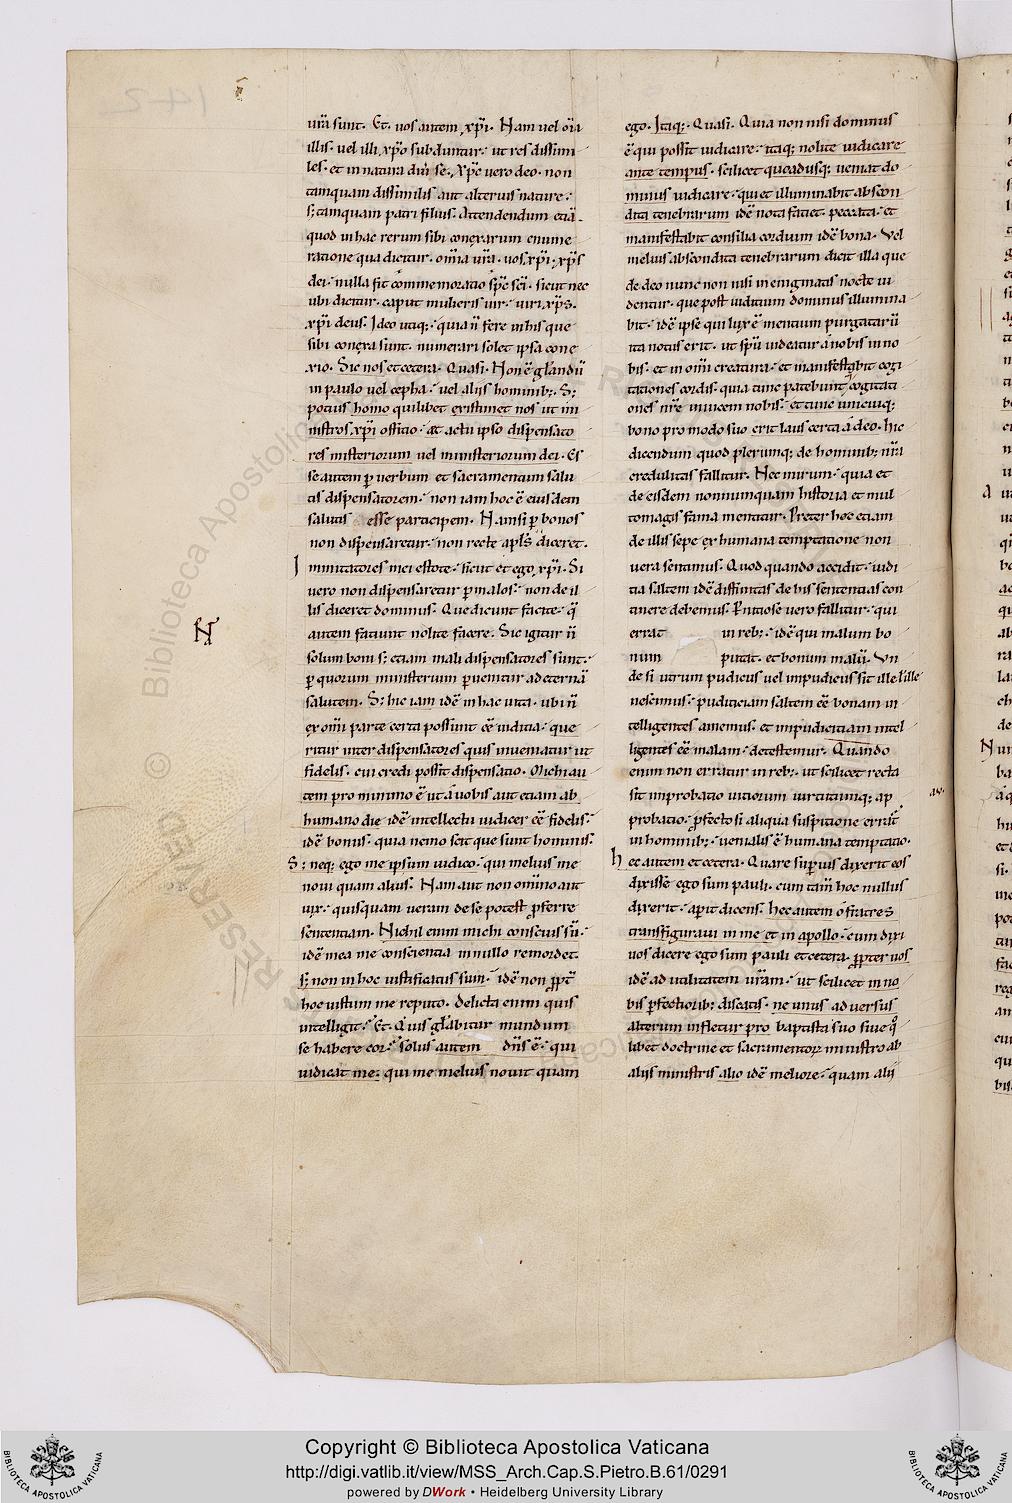 ur̄a sunt. Et. uos autem xp̄i. Nam uel om̄ia
illis. uel illi xp̄o subduntur. ut res dissimi
les. et in natura
tamquam dissimilis aut alterius nature.
s; tamquam patri filius. Attendendum etiā
quod in hac rerum sibi conexarum enume
ratione qua dicitur. om̄ia ur̄a. uos xp̄i. xp̄s
dei. nulla fit commemoratio sp̄c sc̄i. sicut nec
ubi dicitur. caput mulieris uir. uiri xp̄s.
xp̄i deus. Ideo utiq; quia n̄ fere in his que
sibi conexa sunt. numerari solet ipsa cone
xio. Sic nos et cetera. Quasi. Non ē gl̄andū
in paulo uel cepha. uel alijs hominib;. S;
potius homo quilibet existimet nos ut mi
nistros xp̄i officio. ac actu ipso dispensato
res misteriorum uel ministeriorum dei. Es
se autem p̄ uerbum et sacramentum salu
tis dispensatorem. non iam hoc ē eiusdem
salutis esse participem. Nam si p̄ bonos
non dispensaretur. non recte apl̄s diceret.
Inmitatores mei estote. sicut et ego xp̄i. Si
uero non dispensaretur p̄ malos. non de il
lis diceret dominus. Que dicunt facite. q̄
autem faciunt nolite facere. Sic igitur n̄
N
solum boni s; etiam mali dispensatores sunt.
p̄ quorum ministerium p̄uenitur ad eternā
salutem. S; hic iam idē in hac uita. ubi n̄
ex om̄i parte certa possunt cē iudicia. que
ritur inter dispensatores quis inueniatur ut
fidelis. cui credi possit dispensatio. Michi au
tem pro minimo ē ut á uobis aut etiam ab
humano die idē intellectu iudicer cē fidelis.
idē bonus. quia nemo scit que sunt hominis.
S; neq; ego me ipsum iudico. qui melius me
noui quam alius. Nam aut non om̄ino aut
uix. quisquam ueram de se potest p̄ferre
sententiam. Nichil enim michi conscius sū.
idē mea me conscientia in nullo remordet.
s; non in hoc iustificatus sum. idē non pp̄t
hoc iustum me reputo. delicta enim quis
intelligit. Et. Quis gl̄abitur mundum
se habere cor. solus autem dn̄s ē. qui
iudicat me; qui me melius nouit quam
ego. Itaq;. Quasi. Quia non nisi dominus
ē qui possit iudicare. itaq; nolite iudicare
ante tempus. scilicet quoadusq; ueniat do
minus iudicare. qui et illuminabit abscon
dita tenebrarum idē nota faciet. peccata. et
manifestabit consilia cordium idē bona. Vel
melius abscondita tenebrarum dicit illa que
de deo nunc non nisi in enigmatis nocte ui
dentur. que post iuditium dominus illumina
bit. idē ipse qui lux ē mentium purgatarū
ita notus erit. ut sp̄u uideatur á nobis in no
bis. et in om̄i creatura. et manifestabit cogi
tationes cordis. quia tunc patebunt cogitati
ones nr̄e inuicem nobis. et tunc unicuiq;
bono pro modo suo erit laus certa á deo. hic
dicendum quod plerumq; de hominib; nr̄a
credulitas fallitur. Nec mirum. quia et
de eisdem nonnumquam historia et mul
tomagis fama mentitur. Preter hoc etiam
de illis sepe ex humana temptatione non
uera sentimus. Quod quando accidit. iudi
tia saltem idē diffinitas de his sententias con
tinere debemus. P̄nitiose uero fallitur. qui
errat in reb;. idē qui malum bo
num putat. et bonum malū. Vn
de si utrum pudicus uel impudicus sit ille l' ille
nescimus. pudicitiam saltem cē bonam in
telligentes amemus. et impudicitiam intel
ligentes cē malam. detestemur. Quando
enim non erratur in reb;. ut scilicet recta
sit improbatio uitiorum uirtutumq; ap
probatio. p̄fecto si aliqua suspitione errat̄
in hominib;. uenialis ē humana temptatio.
hec autem et cetera. Quare supius dixerit eos
dixisse ego sum pauli. cum tam̄ hoc nullus
dixerit. aperit dicens. hec autem ó fratres
transfiguraui in me et in apollo. cum dixi
uos dicere ego sum pauli et cetera. pp̄ter uos
idē ad utilitatem ur̄am. ut scilicet in no
bis p̄fectiorib; discatis. ne unus aduersus
alterum infletur pro baptista suo siue q̊
libet doctrine et sacramentoꝝ ministro ab
alijs ministris alio idē meliore. quam alij